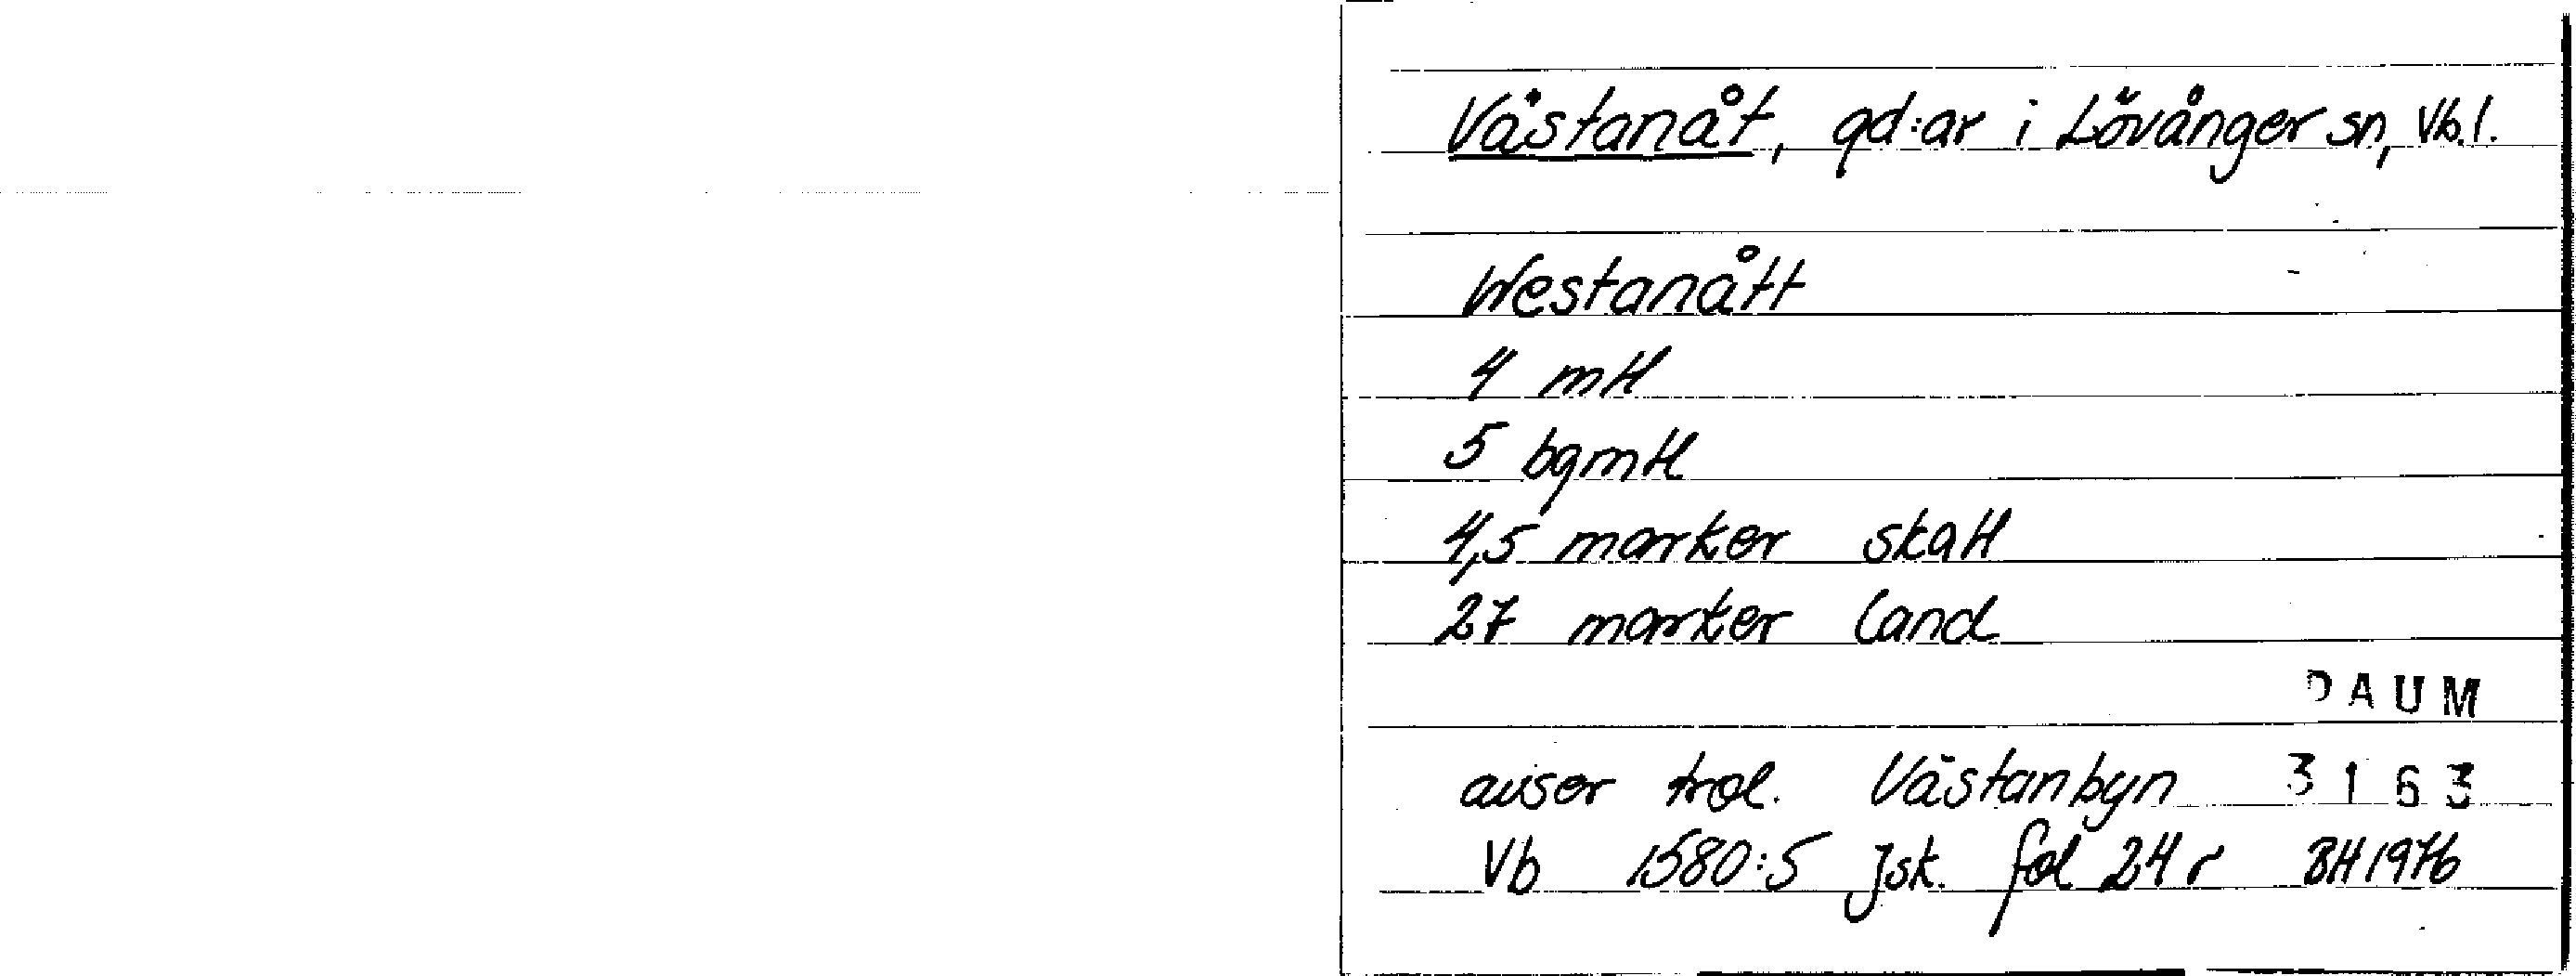 Västanåt, gd:ar i Lövånger sn, Vb.l.
Westanått
4 mtl
5 bgmtl
4,5 marker skatt
27 marker land
DAUM
avser trol. Västanbyn 3163
Vb 1580:5 Jsk. fol 24 r BH 1976